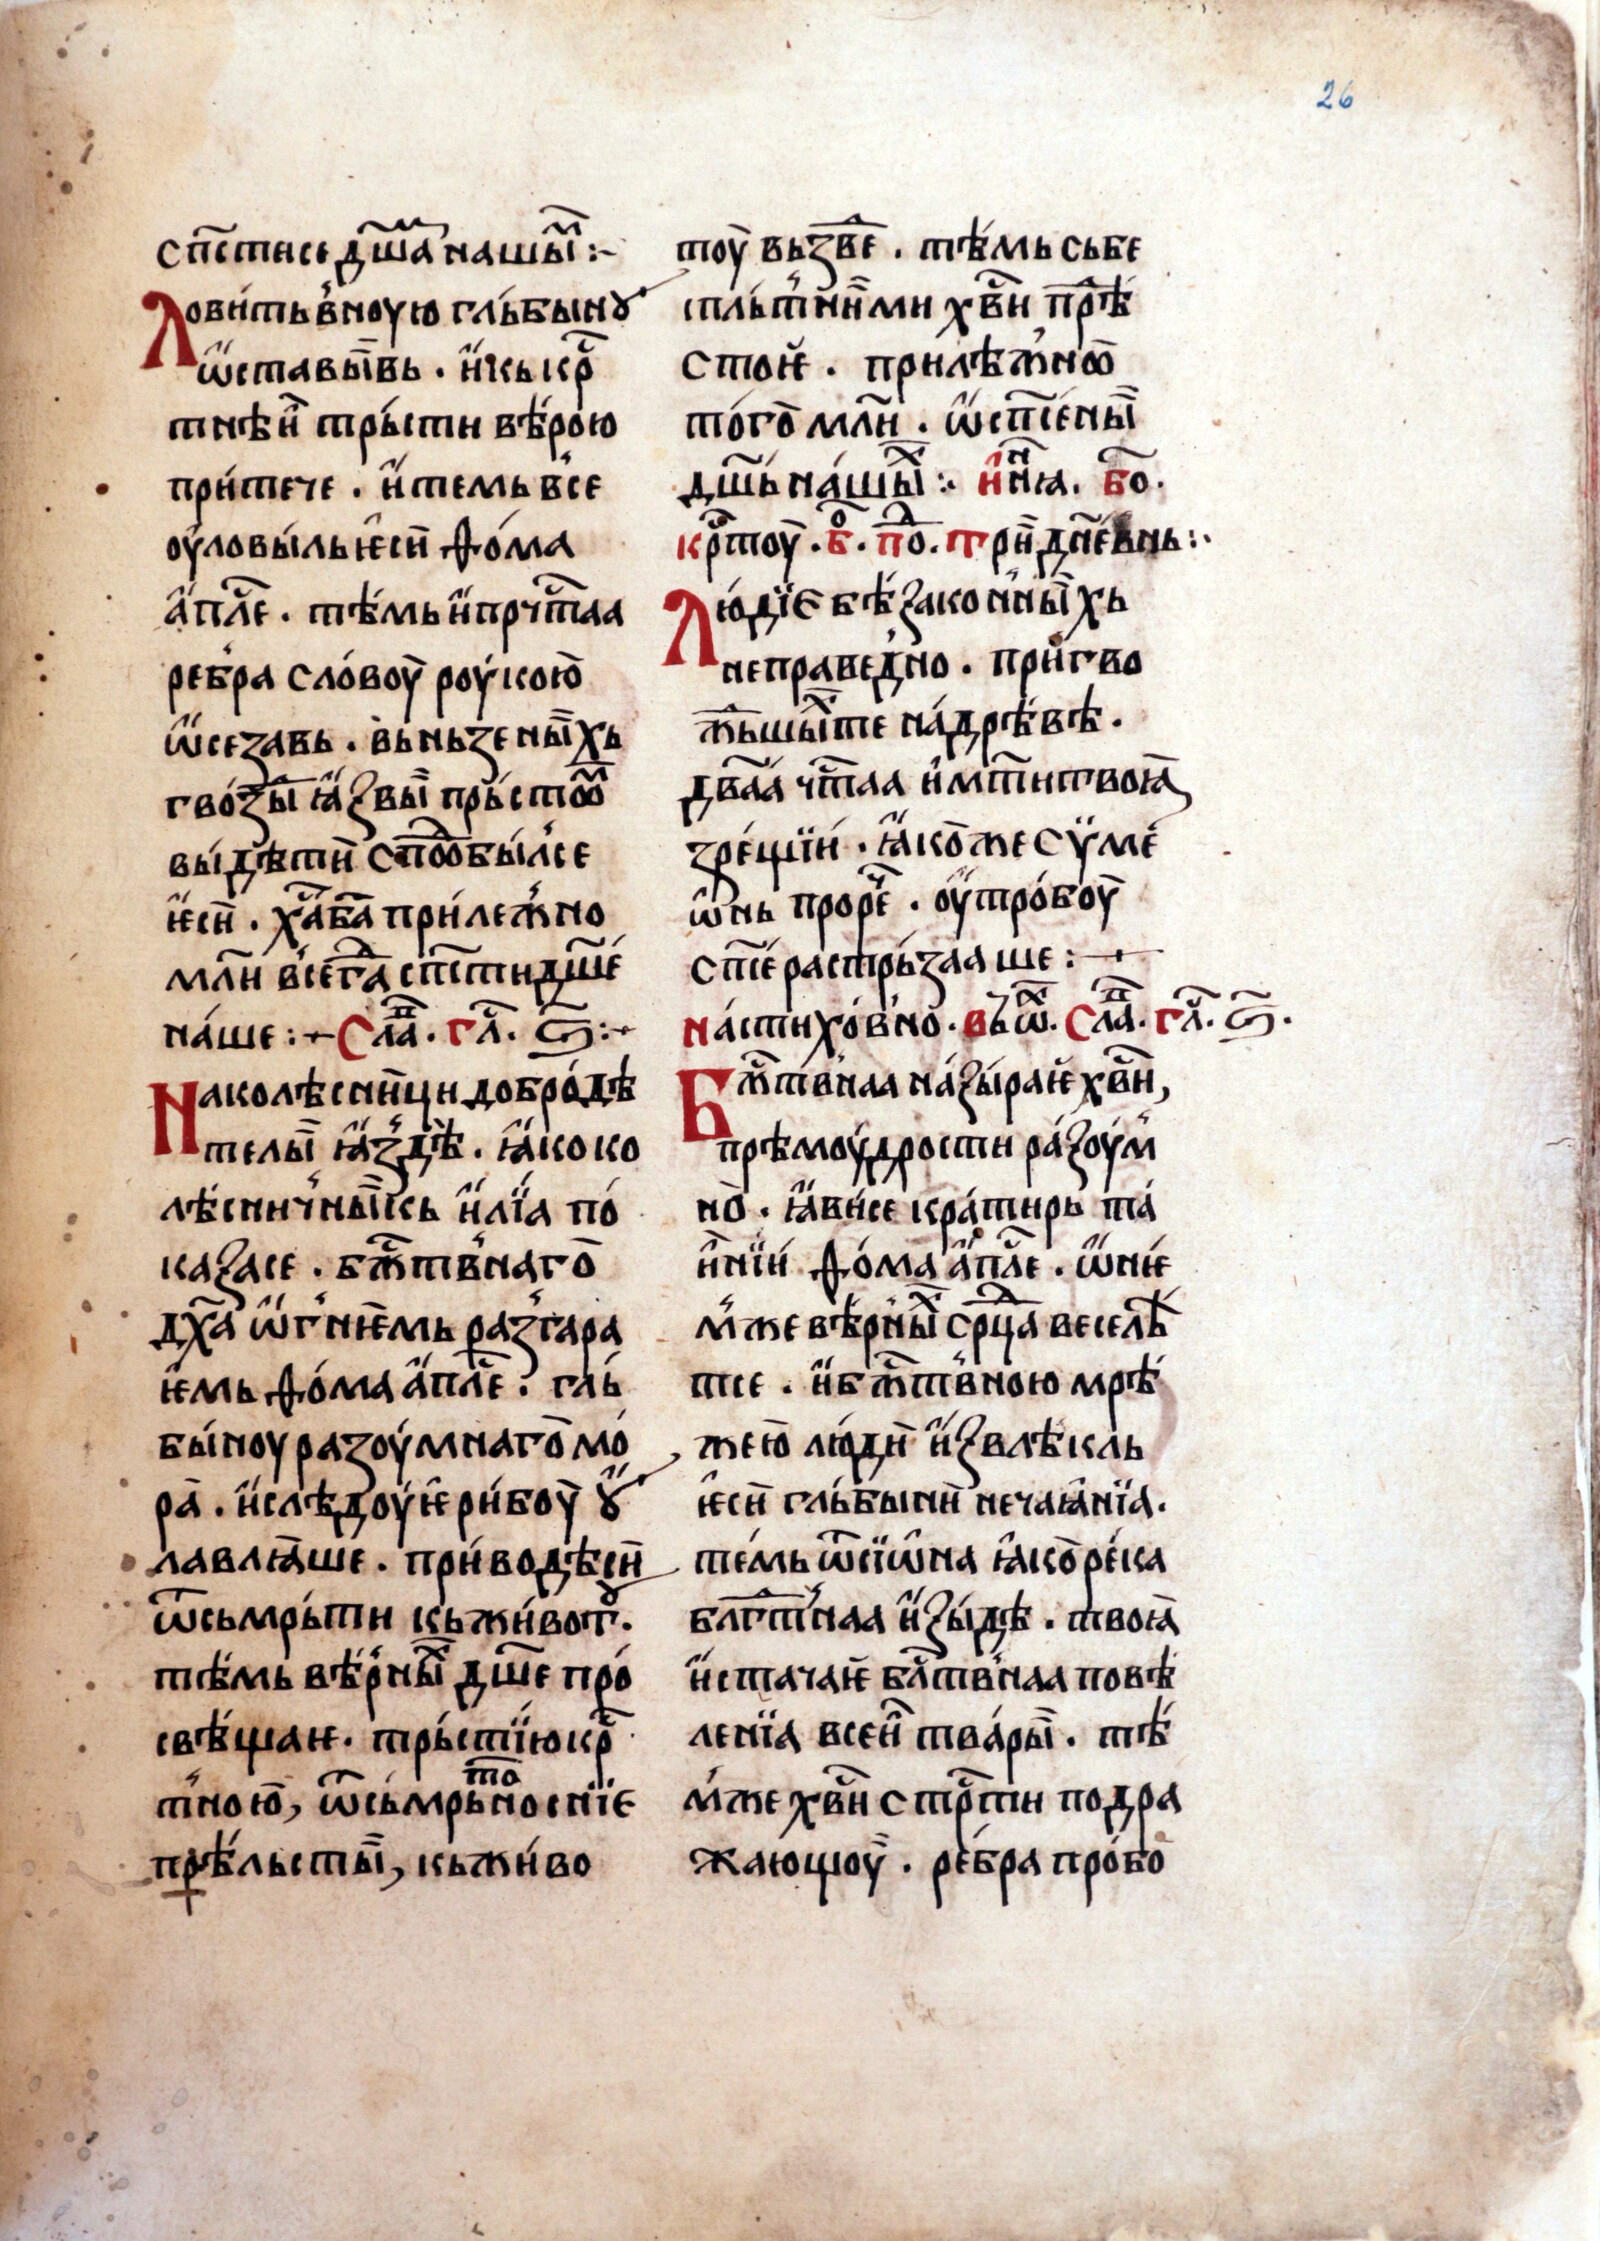 26
спⷭ҇тисе дш҃амь нашыⷨ :~
Ловитьвноую гльбыну
ѡ҆ставы́вь . и҆кькрⷭ҇
тнѣи трьсти вѣ́рою
прите́че . и҆темь все
оу҆ловыль ѥ҆си ѳома
а҆пⷭ҇ле . тѣ́мь и҆прчⷭ҇таа
ре́бра сло́воу роукою
ѡ҆сезавь . вьньзены́хь
гво́зⷣы ꙗ҆звы прьстоⷨ
выдѣти спⷣобы́лсе
ѥ҆си . хⷭ҇а ба҃ прилежно
мл҃и всегⷣа спⷭ҇ти дш҃е
на́ше :~ Слаⷡ . гла҃ . ѕ҃ :~
Наколѣсни́ци добро́дѣ
телы ꙗ҆здѣ . ꙗ҆коко
лѣ́сничныкь и҆лїа по
каза́се . бжⷭ҇твнаго
дх҃а ѡ҆гнѥмь разгара
ѥ҆мь ѳома а҆пⷭ҇ле . гль
бы́ноу разоу́мнаго мо́
ра . и҆слѣдоуѥ рибоу ꙋ҆
лавлꙗше . приводѣси
ѿсьмрьти кьживотꙋ .
тѣ́мь вѣ́рныⷯ дш҃е про
свѣ́щаѥ . трьстїю крⷭ҇
тною , ѿсьмрьтоноснїе
прѣ́льсты , кьживо
тоу вьзвⷣе . тѣ́мь сьбе
спльтны́ми хв҃и прⷣѣ
стоѥ . прилѣжноⷪ
того мл҃и . ѡ҆спⷭ҇ены
дш҃ь нашыⷯ :~ и҆ нⷩꙗ . бо҃ .
крⷭ҇тоу . в҃ . поⷣ . Три́дне́внь :~
Лю́дїе бѣзаконны́хь
непра́ведно . при́гво
жⷣьшыⷯте на́дрѣ́вѣ .
дв҃аа чⷭ҇таа и҆мт҃и твоꙗ
зре́щїи . ꙗ҆коже сѵме
ѡ҆нь проⷬ҇че . оу҆тро́боу
спⷭ҇е растрьзааше :~
на́стихо́вно . вь҆ѡⷯ . Слаⷡ . гла҃ . ѕ҃ .
Бжⷭ҇твнаа на́зы́раѥ хв҃и ,
прѣмоу́дрости ра́зоум
но . ꙗ҆висе кра́тирь та
и҆нїи ѳома а҆пⷭ҇ле . ѡ҆нѥ
мже вѣ́рныⷯ срⷣца веселѣ
тсе . и҆бжⷭ҇твною мрѣ
жею лю́ди и҆звлѣкль
ѥ҆си гльбыни нечаꙗнїа .
те́мь ѿсїѡна ꙗ҆коре́ка
блгⷣтнаа и҆зы́дѣ . твоꙗ
и҆стачаѥ бжⷭ҇твнаа повѣ
ленїа всеи твары . тѣ́
мже хв҃и стрⷭ҇ти подра
жающоу . ре́бра пробо